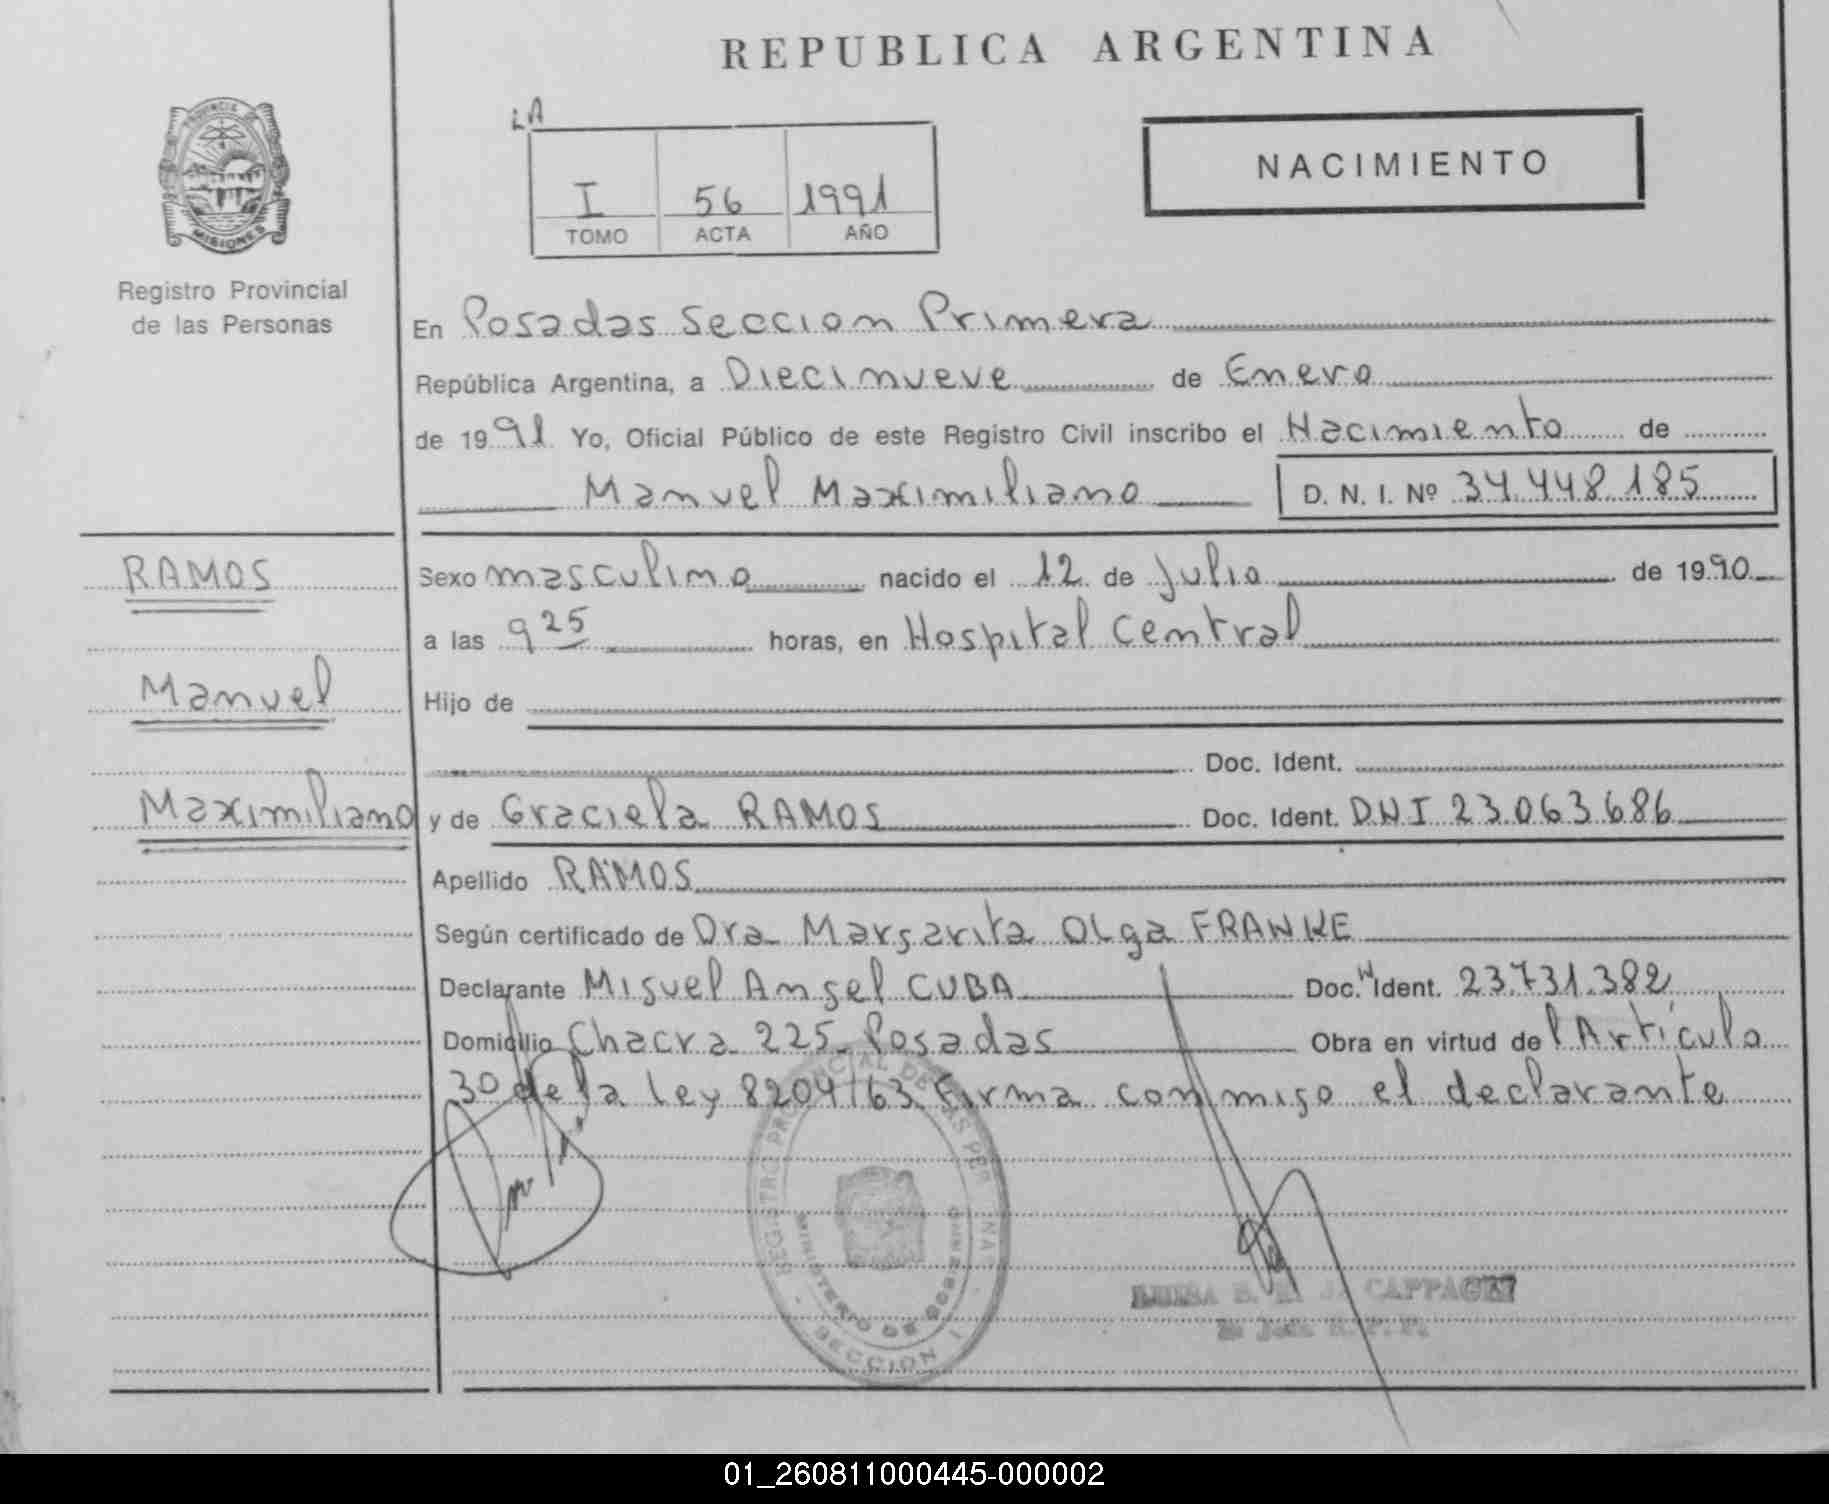 REPUBLICA ARGENTINA
LA
I 56 1991
TOMO ACTA AÑO
NACIMIENTO
PROVINCIA
MISIONES
Registro Provincial
de las Personas
En Posadas Seccion Primera
República Argentina, a Diecinueve de Enero
de 1991 Yo, Oficial Público de este Registro Civil inscribo el Nacimiento de
Manuel Maximiliano D. N. I. Nº 34.448.185
RAMOS
Manuel
Maximiliano
Sexo masculino nacido el 12 de Julio de 1990
a las 9 25 horas, en Hospital Central
Hijo de
Doc. Ident.
y de Graciela RAMOS Doc. Ident. DNI 23.063.686
Apellido RAMOS
Según certificado de Dra Margarita Olga FRANKE
Declarante Miguel Angel CUBA Doc. Ident. 23.731.382
Domicilio Chacra 225 Posadas Obra en virtud del Artículo
30 de la Ley 8204/63 Firma conmigo el declarante
REGISTRO PROVINCIAL DE LAS PERSONAS
MINISTERIO DE GOBIERNO
SECCION 1
LUISA
01_260811000445-000002